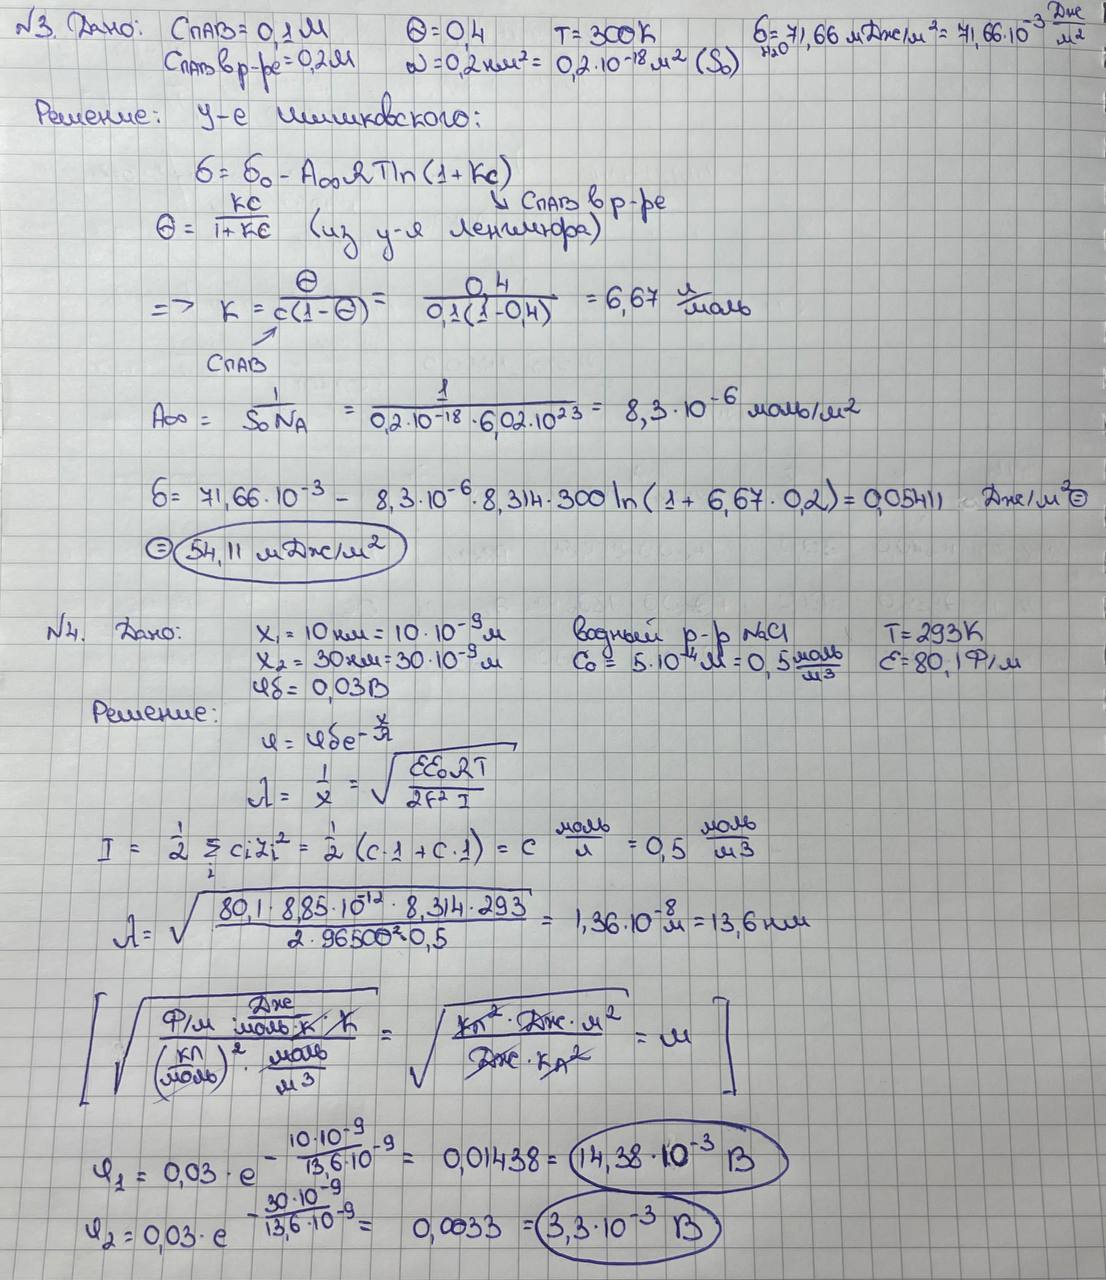 №3. Дано: Cпав = 0,1 М   Θ = 0,4   T = 300К   σH₂O = 71,66 мДж/м² = 71,66·10⁻³ Дж/м²
Cпав в р-ре = 0,2М   ω = 0,2 нм² = 0,2·10⁻¹⁸ м² (S₀)
Решение: У-е Шишковского:
σ = σ₀ - A∞RT ln(1+Kc)
↘ Cпав в р-ре
Θ = Kc/(1+Kc) (из у-я Ленгмюра)
=> K = Θ/(c(1-Θ)) = 0,4/(0,1(1-0,4)) = 6,67 л/моль
Cпав
A∞ = 1/(S₀NA) = 1/(0,2·10⁻¹⁸·6,02·10²³) = 8,3·10⁻⁶ моль/м²
σ = 71,66·10⁻³ - 8,3·10⁻⁶·8,314·300 ln(1 + 6,67·0,2) = 0,05411 Дж/м² ⊜
⊜ 54,11 мДж/м²
№4. Дано: x₁ = 10 нм = 10·10⁻⁹ м   водный р-р NaCl   T = 293К
x₂ = 30 нм = 30·10⁻⁹ м   C₀ = 5·10⁻⁴ М = 0,5 моль/м3   ε = 80,1 Ф/м
φδ = 0,03В
Решение:
φ = φδe^(-x/λ)
λ = 1/χ = √(εε₀RT/(2F² I))
I = 1/2 Σi cizi² = 1/2 (c·1 + c·1) = c моль/л = 0,5 моль/м3
λ = √(80,1·8,85·10⁻¹²·8,314·293/(2·96500²·0,5)) = 1,36·10⁻⁸ м = 13,6 нм
[√(Ф/м · Дж/(моль·К) · К/((Кл/моль)² · моль/м3)) = √(Кл²·Дж·м²/(Дж·Кл²)) = м]
φ₁ = 0,03·e^(-10·10⁻⁹/(13,6·10⁻⁹)) = 0,01438 = 14,38·10⁻³ В
φ₂ = 0,03·e^(-30·10⁻⁹/(13,6·10⁻⁹)) = 0,0033 = 3,3·10⁻³ В